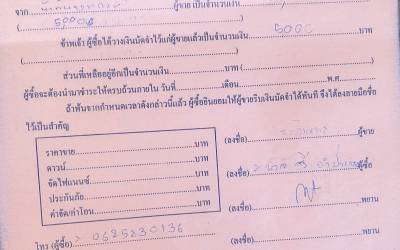 จาก ผู้ขาย เป็นจำนวนเงิน
(5000 บาท
ข้าพเจ้า ผู้ซื้อได้วางเงินมัดจำไว้แก่ผู้ขายแล้วเป็นจำนวนเงิน 5000
บาท
ส่วนที่เหลืออยู่อีกเป็นจำนวนเงิน บาท
ผู้ซื้อจะต้องนำมาชำระให้ครบถ้วนภายใน วันที่ เดือน พ.ศ.
ถ้าพ้นจากกำหนดเวลาดังกล่าวนี้แล้ว ผู้ซื้อยินยอมให้ผู้ขายริบเงินมัดจำได้ทันที จึงได้ลงลายมือชื่อ
ไว้เป็นสำคัญ
ราคาขาย บาท (ลงชื่อ) ผู้ขาย
ดาวน์ บาท
จัดไฟแนนซ์ บาท (ลงชื่อ) ผู้ซื้อ
ประกันภัย บาท
(ลงชื่อ) พยาน
ค่าจัด/ค่าโอน บาท
โทร (ผู้ซื้อ) 0625230136 (ลงชื่อ) พยาน